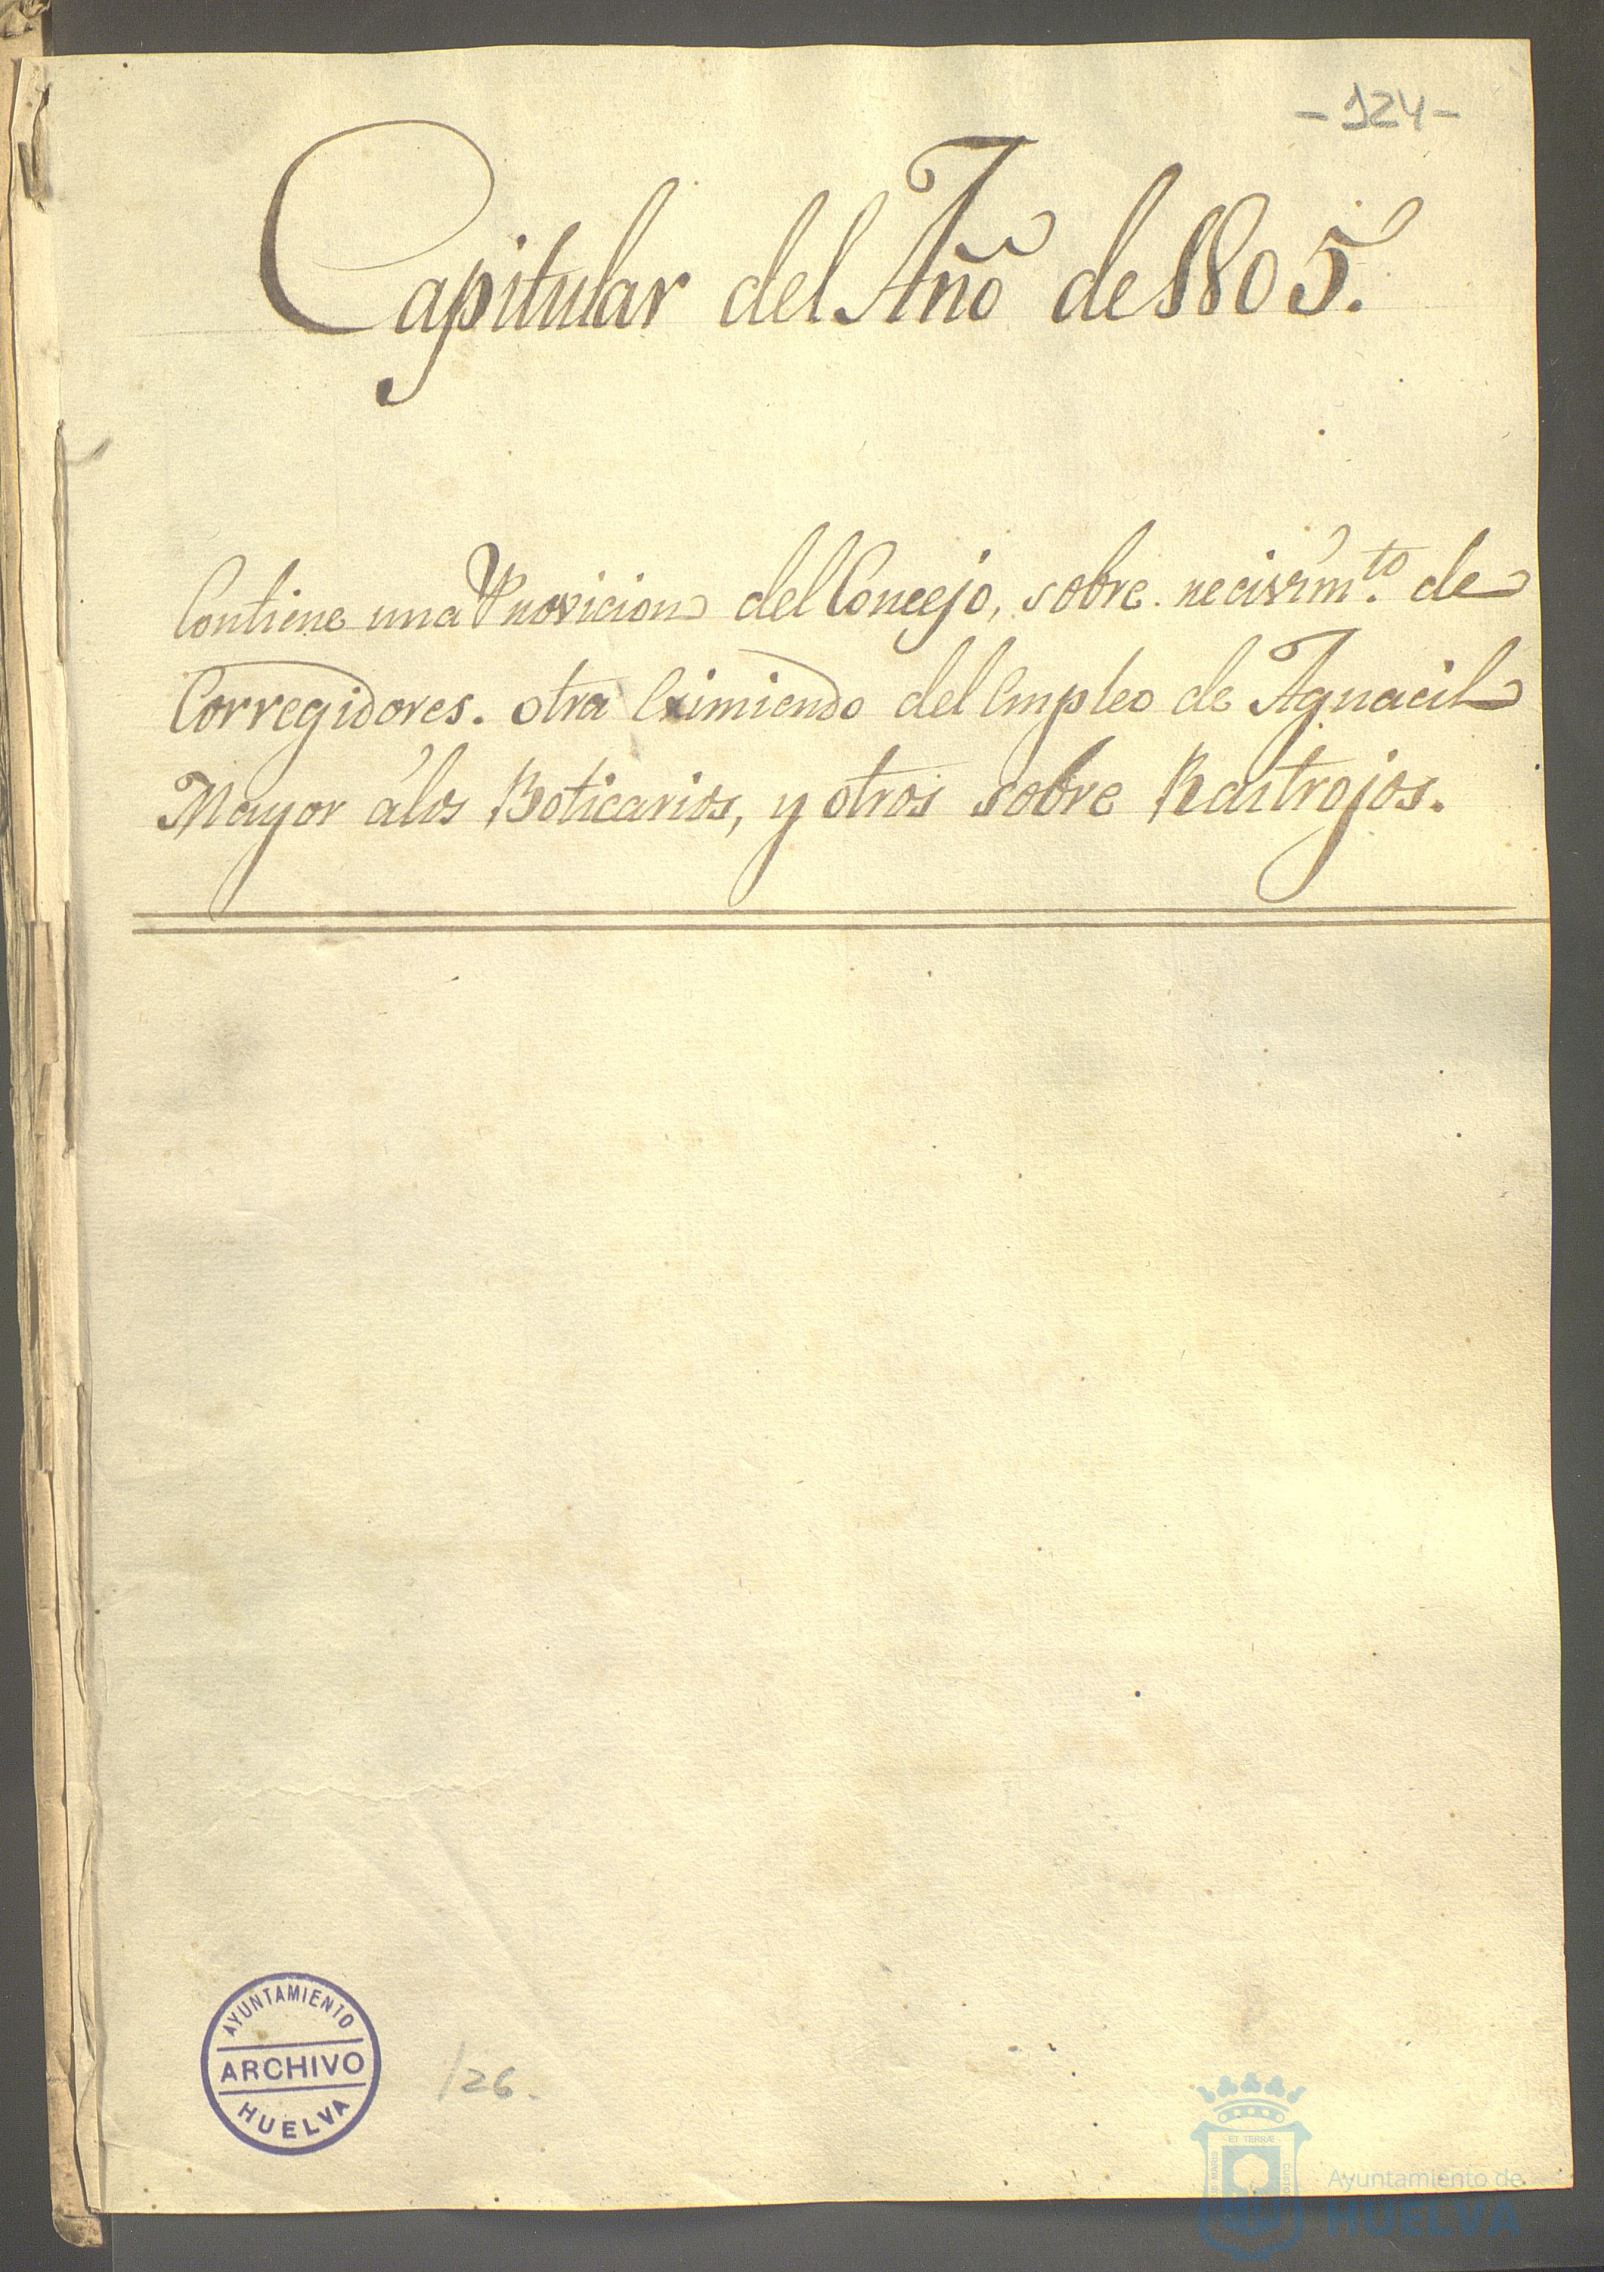 -124-
Capitular del Año de 1805.
Contiene una Provicion del Concejo, sobre recivim.to de
Corregidores. otra Eximiendo del Empleo de Aguacil
Mayor á los Boticarios, y otros sobre Rastrojos.
AYUNTAMIENTO
ARCHIVO
HUELVA
126.
ET TERRÆ
Ayuntamiento de
HUELVA